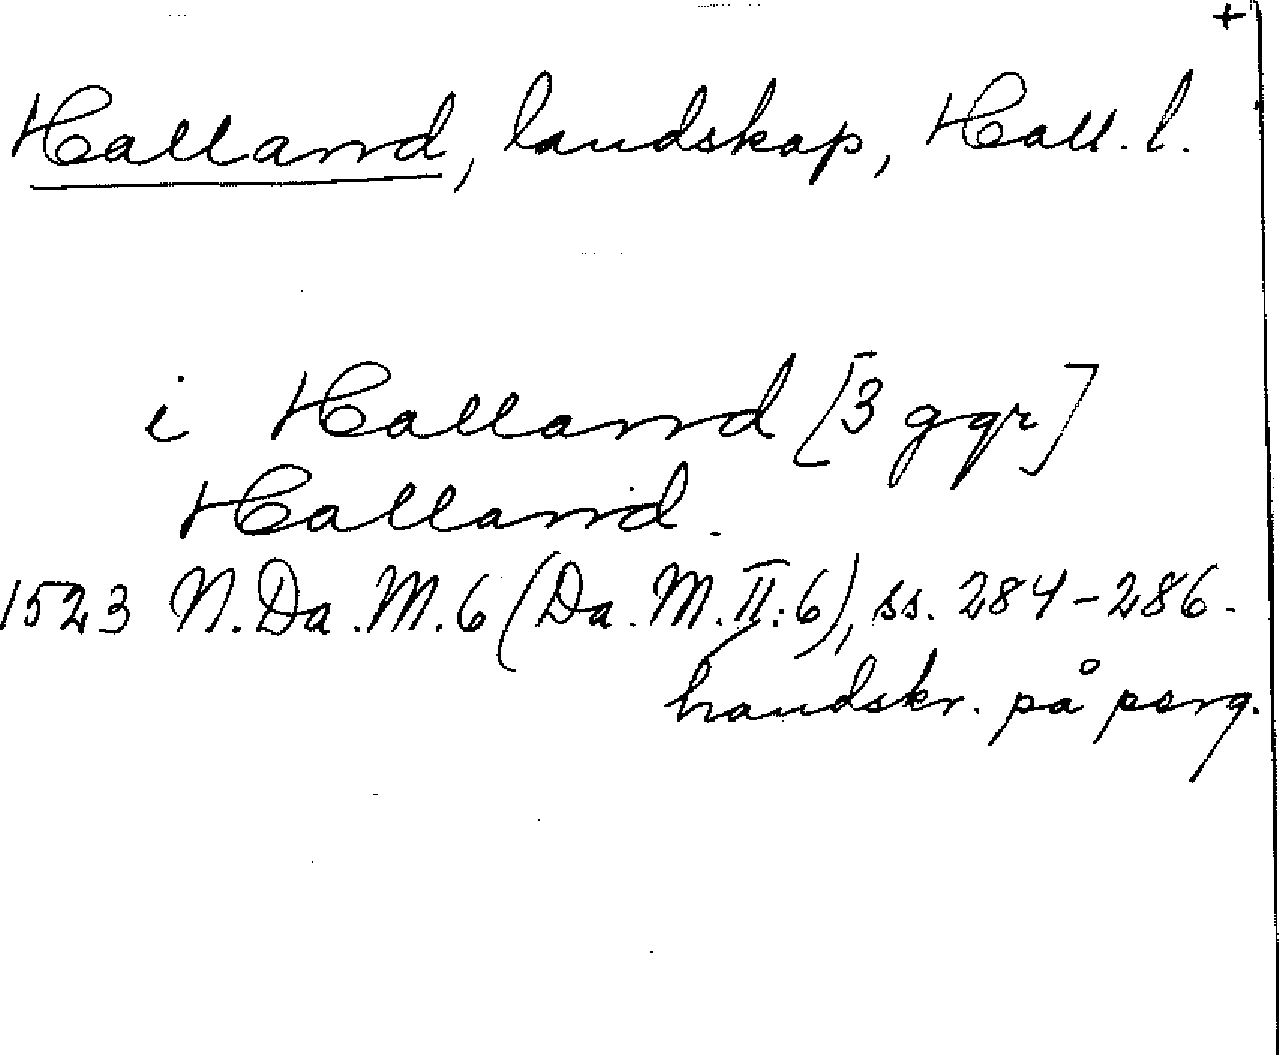 +
Halland, landskap, Hall. l.
i Halland [3 ggr]
Halland.
1523 N. Da. M. 6 (Da. M. II: 6), ss. 284-286.
handskr. på perg.